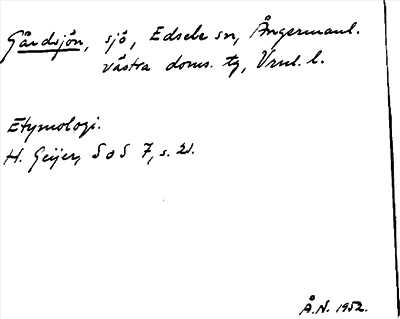 Gårdsjön, sjö, Edsele sn, Ångermanl.
västra doms. tg, Vrnl. l.
Etymologi.
H. Geijer, S o S 7, s. 21.
Å.N. 1952.